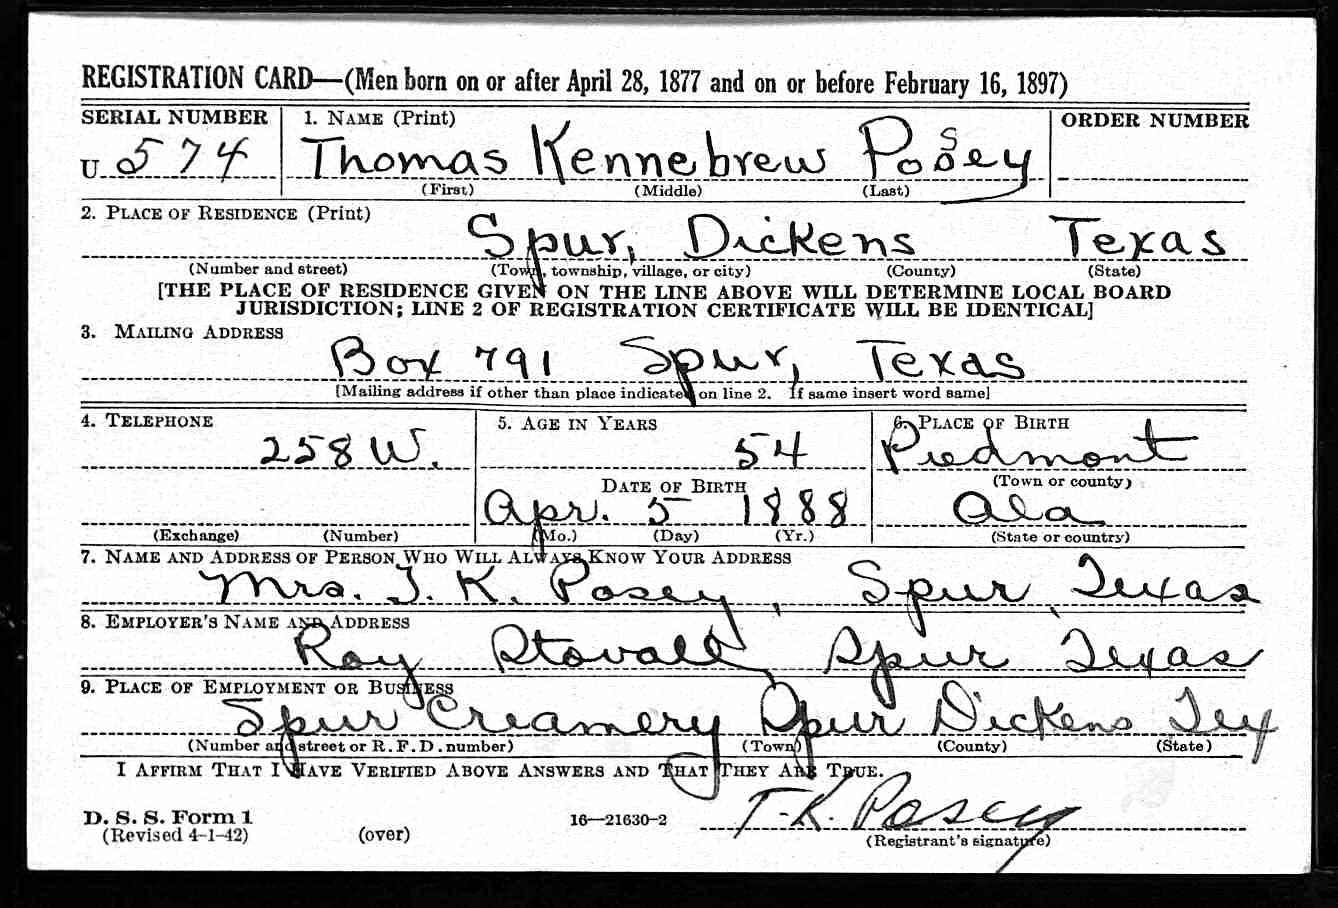 REGISTRATION CARD—(Men born on or after April 28, 1877 and on or before February 16, 1897)
SERIAL NUMBER 1. NAME (Print) ORDER NUMBER
U 574 Thomas Kennebrew Posey
(First) (Middle) (Last)
2. PLACE OF RESIDENCE (Print)
Spur, Dickens Texas
(Number and street) (Town, township, village, or city) (County) (State)
[THE PLACE OF RESIDENCE GIVEN ON THE LINE ABOVE WILL DETERMINE LOCAL BOARD
JURISDICTION; LINE 2 OF REGISTRATION CERTIFICATE WILL BE IDENTICAL]
3. MAILING ADDRESS
Box 791 Spur, Texas
[Mailing address if other than place indicated on line 2. If same insert word same]
4. TELEPHONE 5. AGE IN YEARS 6. PLACE OF BIRTH
258 W. 54 Piedmont
(Town or county)
DATE OF BIRTH
Apr. 5 1888 Ala
(Exchange) (Number) (Mo.) (Day) (Yr.) (State or country)
7. NAME AND ADDRESS OF PERSON WHO WILL ALWAYS KNOW YOUR ADDRESS
Mrs. T. K. Posey, Spur, Texas
8. EMPLOYER'S NAME AND ADDRESS
Roy Stovall, Spur Texas
9. PLACE OF EMPLOYMENT OR BUSINESS
Spur Creamery Spur Dickens Tex
(Number and street or R. F. D. number) (Town) (County) (State)
I AFFIRM THAT I HAVE VERIFIED ABOVE ANSWERS AND THAT THEY ARE TRUE.
D. S. S. Form 1
(Revised 4-1-42) (over) 16—21630-2 T. K. Posey
(Registrant's signature)